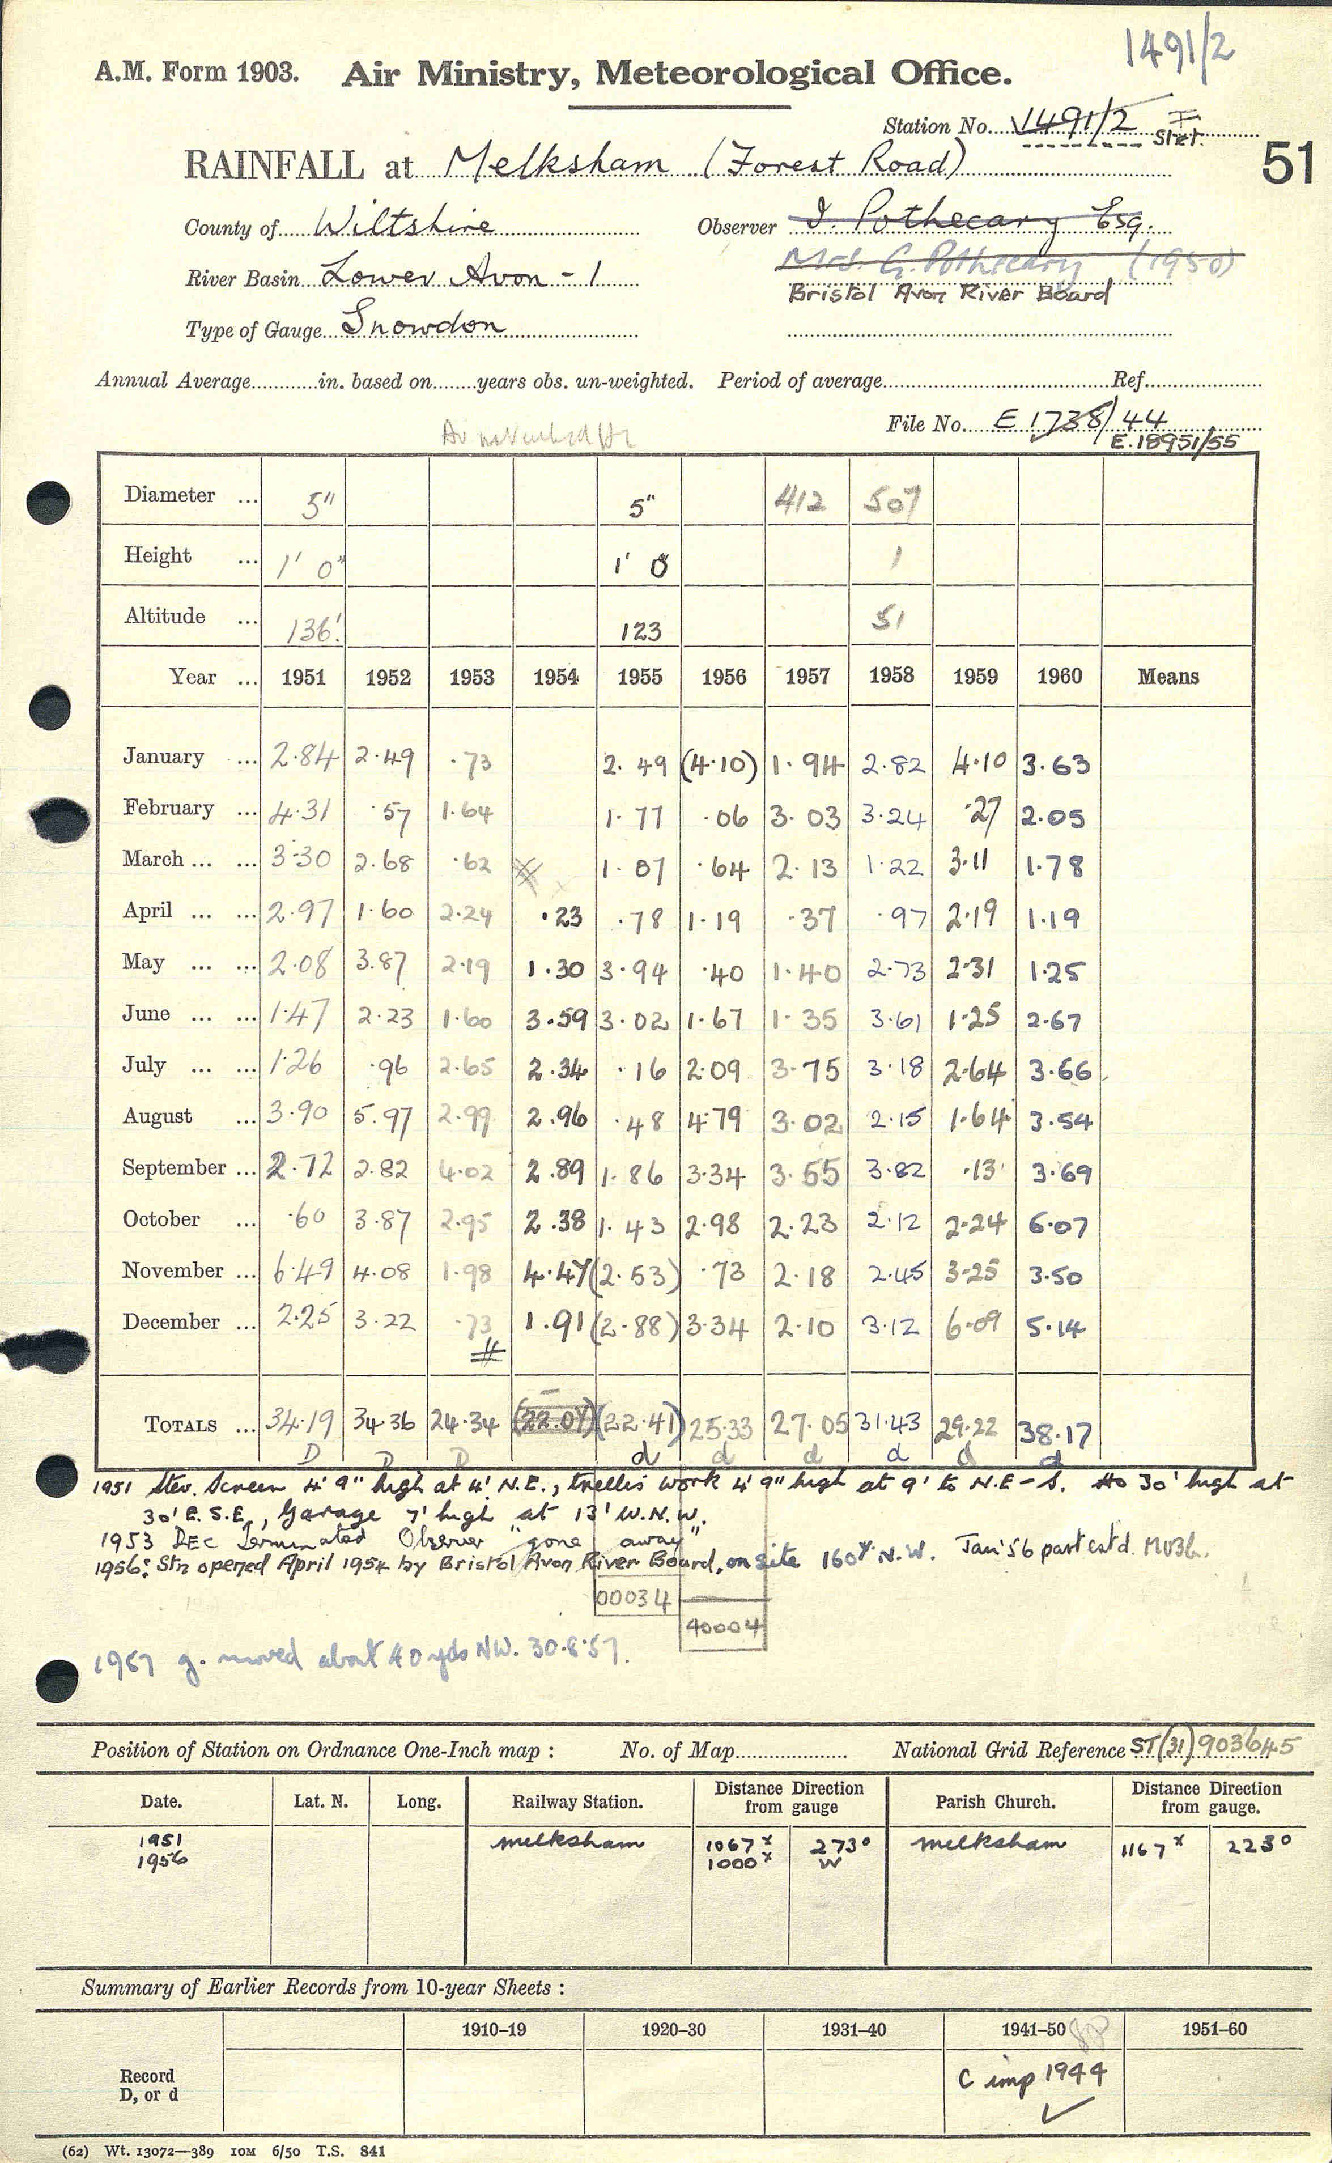 1491/2
A.M. Form 1903. Air Ministry, Meteorological Office.
Station No. 1491/2
51
RAINFALL at Melksham (Forest Road)
County of Wiltshire Observer I. Pothecary Esq.
Mrs. G. Pothecary (1950)
River Basin Lower Avon - 1 Bristol Avon River Board
Type of Gauge Snowdon
Annual Average in. based on years obs. un-weighted. Period of average Ref
File No. E 1738/44
E.18951/55
Diameter ... 5" 5" 412 507
Height ... 1' 0" 1' 0 1
Altitude ... 136' 123 51
Year ... 1951 1952 1953 1954 1955 1956 1957 1958 1959 1960 Means
January ... 2.84 2.49 .73 2.49 (4.10) 1.94 2.82 4.10 3.63
February ... 4.31 .57 1.64 1.77 .06 3.03 3.24 .27 2.05
March ... ... 3.30 2.68 .62 1.07 .64 2.13 1.22 3.11 1.78
April ... ... 2.97 1.60 2.24 .23 .78 1.19 .37 .97 2.19 1.19
May ... ... 2.08 3.87 2.19 1.30 3.94 .40 1.40 2.73 2.31 1.25
June ... ... 1.47 2.23 1.60 3.59 3.02 1.67 1.35 3.61 1.25 2.67
July ... ... 1.26 .96 2.65 2.34 .16 2.09 3.75 3.18 2.64 3.66
August ... 3.90 5.97 2.99 2.96 .48 4.79 3.02 2.15 1.64 3.54
September ... 2.72 2.82 4.02 2.89 1.86 3.34 3.55 3.82 .13 3.69
October ... .60 3.87 2.95 2.38 1.43 2.98 2.23 2.12 2.24 6.07
November ... 6.49 4.08 1.98 4.47 (2.53) .73 2.18 2.45 3.25 3.50
December ... 2.25 3.22 .73 1.91 (2.88) 3.34 2.10 3.12 6.09 5.14
TOTALS ... 34.19 34.36 24.34 (22.07) (22.41) 25.33 27.05 31.43 29.22 38.17
D D D d d d d d d
1951 Stev. Screen 4' 9" high at 4' N.E., trellis work 4' 9" high at 9' to N.E - S. Ho 30' high at
30' E.S.E., Garage 7' high at 13' W.N.W.
1953 DEC Terminated Observer "gone away"
1956: Stn opened April 1954 by Bristol Avon River Board, on site 160ʸ N.W. Jan '56 part estd.
00034
90004
1957 g. moved about 40 yds NW. 30.8.57.
Position of Station on Ordnance One-Inch map : No. of Map National Grid Reference ST(31)903645
Date. Lat. N. Long. Railway Station. Distance Direction from gauge Parish Church. Distance Direction from gauge.
1951 Melksham 1067ˣ 273° Melksham 1167ˣ 223°
1956 1000ˣ W
Summary of Earlier Records from 10-year Sheets :
1910–19 1920–30 1931–40 1941–50 1951–60
Record
D, or d
C imp 1944
(62) Wt. 13072—389 10M 6/50 T.S. 841